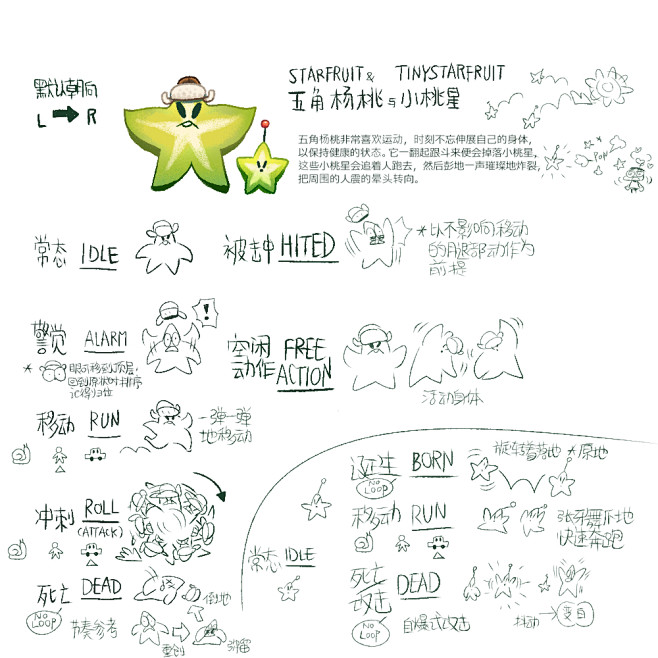 默认朝向
L R
STARFRUIT & TINYSTARFRUIT
五角杨桃与小桃星
五角杨桃非常喜欢运动，时刻不忘伸展自己的身体，
以保持健康的状态。它一翻起跟斗来便会掉落小桃星，
这些小桃星会追着人跑去，然后彭地一声璀璨地炸裂，
把周围的人震的晕头转向。
POP
常态 IDLE
被击中 HITED
*以不影响移动
的腿部动作为
前提
警觉 ALARM
!
*眼可移到顶层,
回到原状时排序
记得归位
空闲 FREE
动作 ACTION
活动身体
移动 RUN
一弹一弹
地移动
冲刺 ROLL
(ATTACK)
死亡 DEAD
倒地
NO LOOP
节奏参考
重创
弥留
常态 IDLE
诞生 BORN
NO LOOP
旋转着落地 *原地
移动 RUN
张牙舞爪地
快速奔跑
死亡 DEAD
攻击
NO LOOP
自爆式攻击
抖动
变白